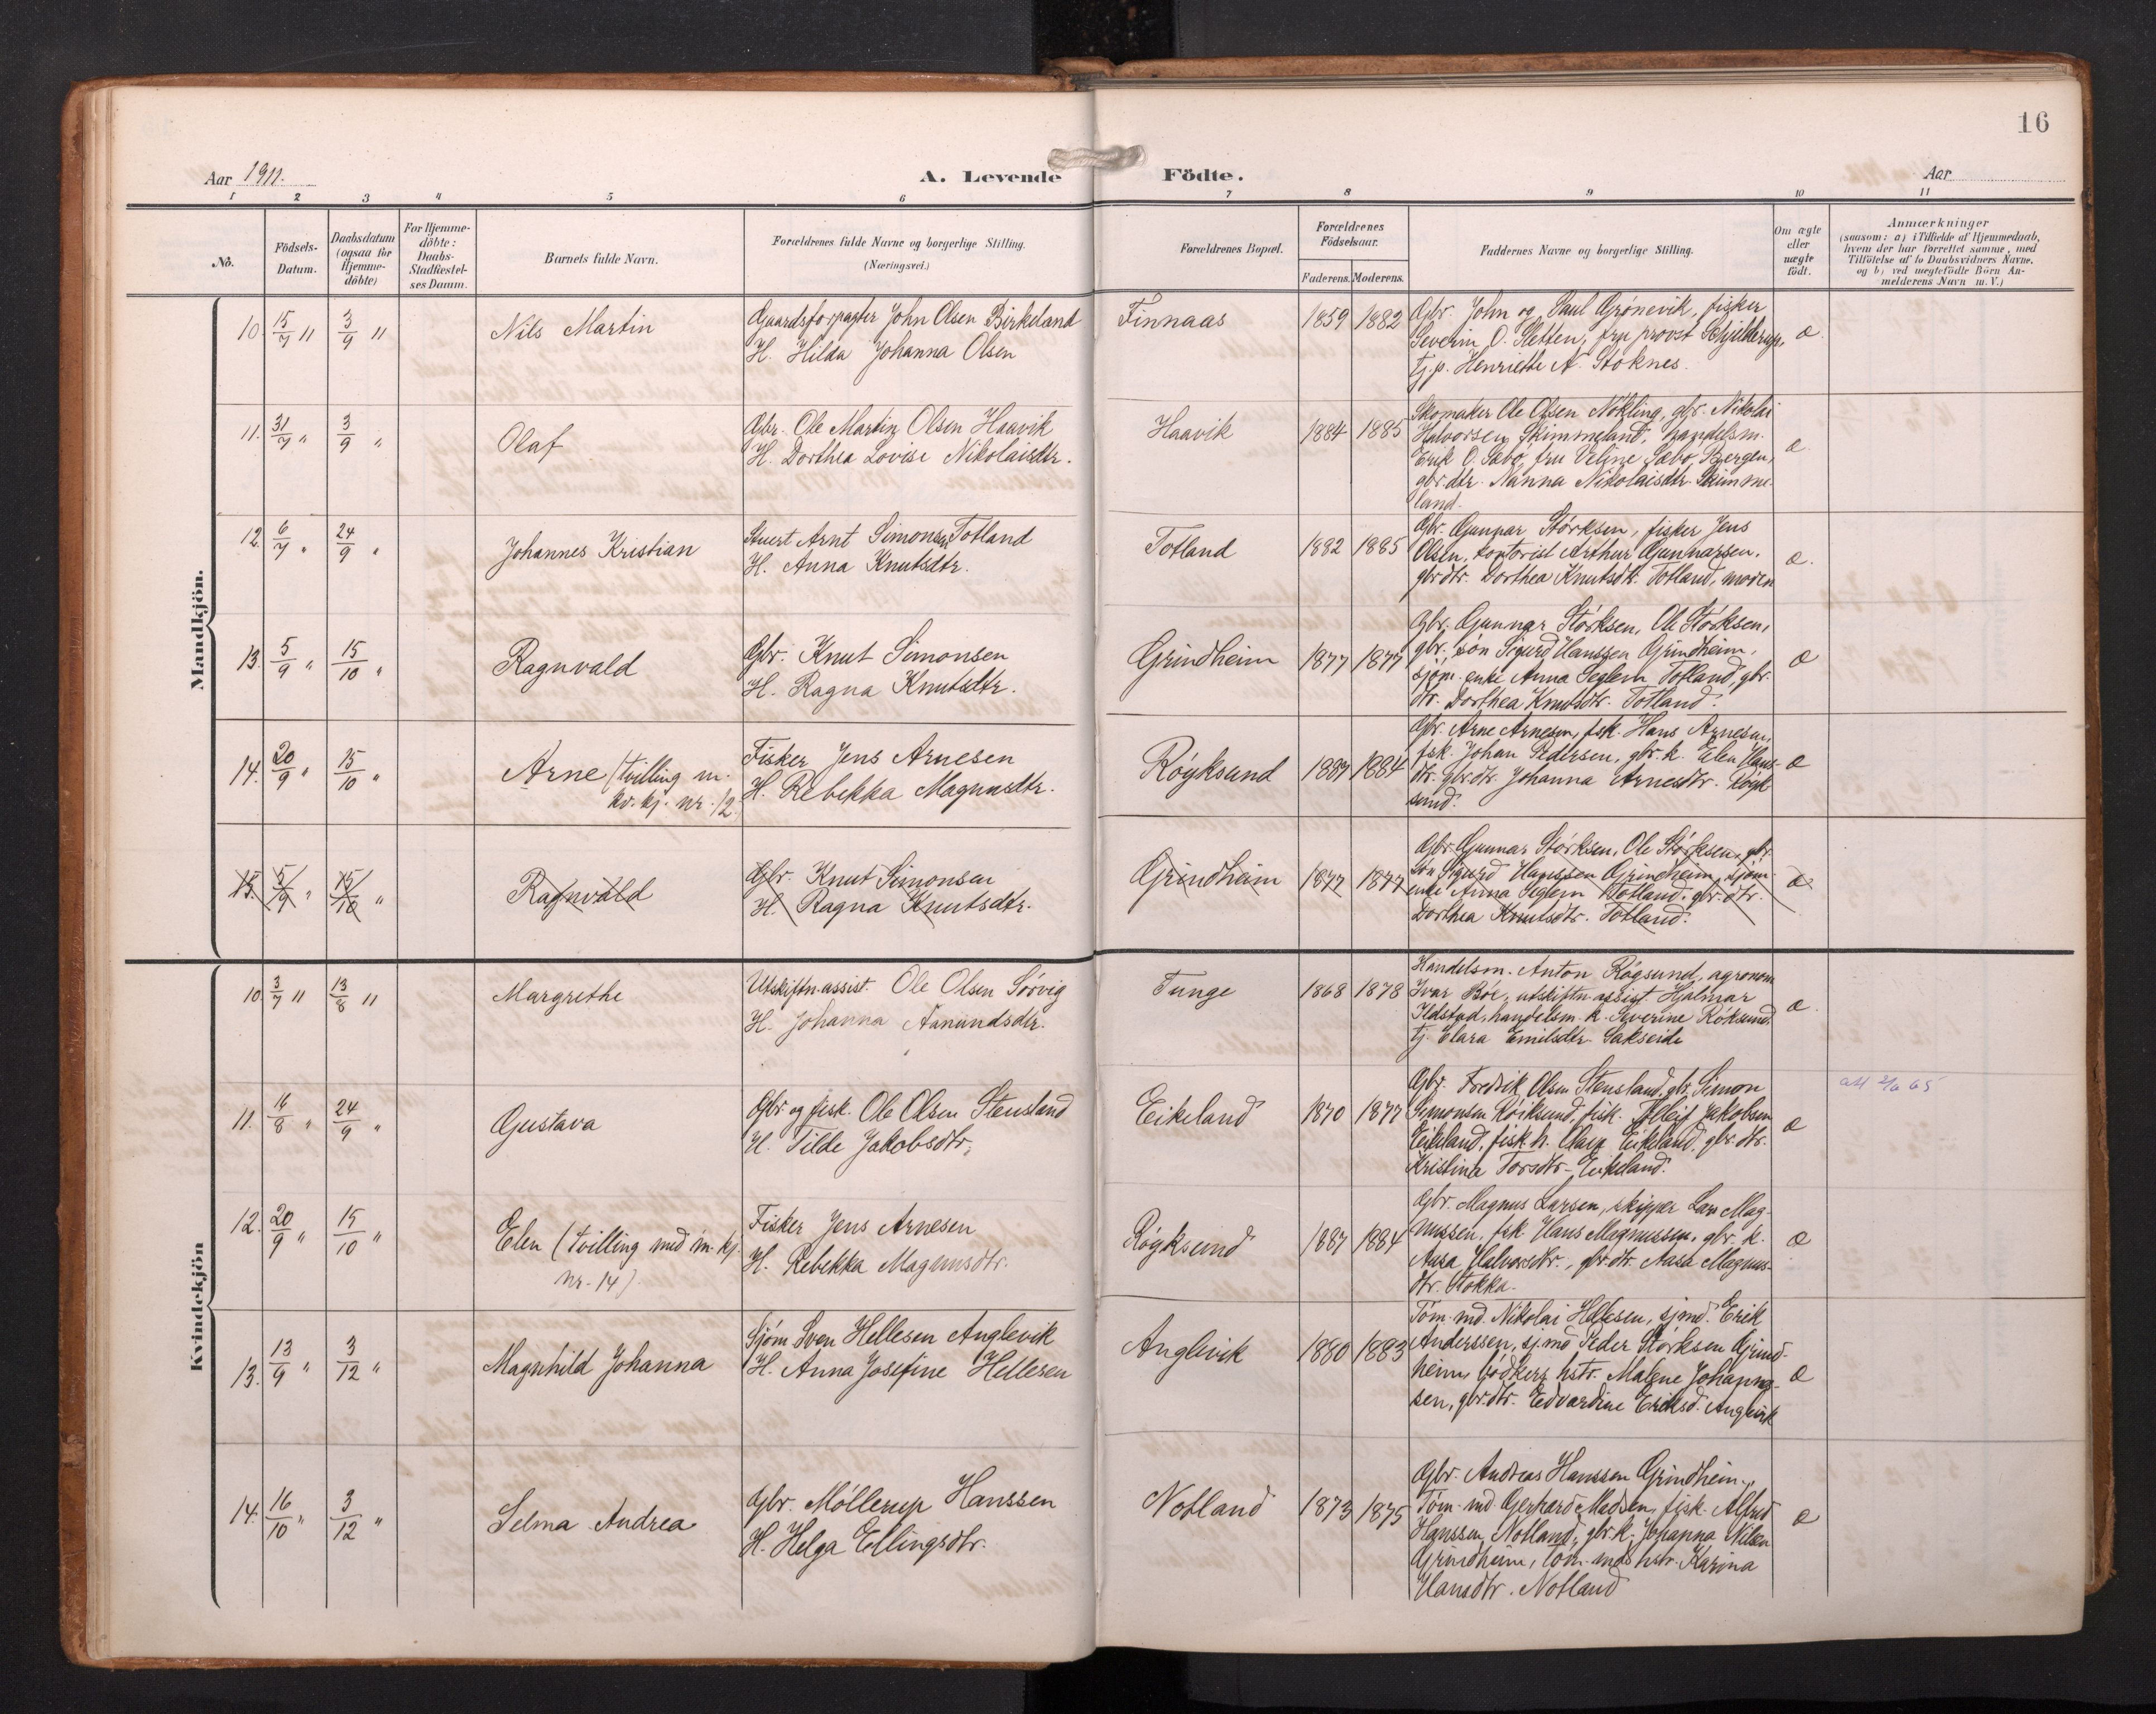 16
Aar 1911.
A. Levende Födte.
Aar
1 2 3 4 5 6 7 8 9 10 11
No.
Födsels-Datum.
Daabsdatum (ogsaa for Hjemmedöbte)
For Hjemmedöbte: Daabs-Stadfæstelses Datum.
Barnets fulde Navn.
Forældrenes fulde Navne og borgerlige Stilling.
(Næringsvei.)
Forældrenes Bopæl.
Forældrenes Födselsaar.
Faderens. Moderens.
Faddernes Navne og borgerlige Stilling.
Om ægte eller uægte födt.
Anmærkninger
(saasom: a) i Tilfælde af Hjemmedaab,
hvem der har forrettet samme, med
Tilföielse af to Daabsvidners Navne.
og b) ved uægtefödte Börn An-
melderens Navn m. V.)
Mandkjön.
10. 15/7 " 3/9 " Nils Martin
Gaardsforpagter John Olsen Birkeland
H. Hilda Johanna Olsen
Finnaas 1859 1882
Gbr. John og Paul Grønevik, fisker
Severin O. Sletten, fru provst Schjelderup,
tj.p. Henriette A. Stoknes.
æ.
11. 31/7 " 3/9 " Olaf
Gbr. Ole Martin Olsen Haavik
H. Dorthea Lovise Nikolaisdtr.
Haavik 1884 1885
Skomaker Ole Olsen Nökling, gbr. Nikolai
Halvorsen Skimmeland, handelsm.
Erik O. Sæbø, fru Veline Sæbø, Bergen,
gbr dtr. Nanna Nikolaisdtr. Skimme-
land.
æ.
12. 6/7 " 24/9 " Johannes Kristian
Stuert Arnt Simonsen Totland
H. Anna Knutsdtr.
Totland 1882 1885
Gbr. Gunnar Störksen, fisker Jens
Olsen, kontorist Arthur Gunnarsen,
gbrdtr. Dorthea Knutsdtr. Totland, moren
æ.
13. 5/9 " 15/10 " Ragnvald
Gbr. Knut Simonsen
H. Ragna Knutsdtr.
Grindheim 1877 1877
Gbr. Gunnar Störksen, Ole Störksen,
gbr. sön Sigurd Hanssen Grindheim,
sjöm. enke Anna Seglem Totland, gbr.
dtr. Dorthea Knutsdtr. Totland.
æ
14. 20/9 " 15/10 " Arne (tvilling m.
kv. kj. nr. 12.
Fisker Jens Arnesen
H. Rebekka Magnusdtr.
Röyksund 1887 1884
Gbr. Arne Arnesen, fsk. Hans Arnesen,
fsk. Johan Pedersen, gbr. k. Elen Hans-
dtr. gbr.dtr. Johanna Arnesdtr. Röyk-
sund.
æ
15. 5/9 " 15/10 " Ragnvald
Gbr. Knut Simonsen
H. Ragna Knutsdtr.
Grindheim 1877 1877
Gbr. Gunnar Störksen, Ole Störksen, gbr.
sön Sigurd Hanssen Grindheim, sjöm.
enke Anna Seglem Totland, gbr. dtr.
Dorthea Knutsdtr. Totland.
æ
Kvindekjön
10. 3/7 " 13/8 " Margrethe
Utskiftn.assist. Ole Olsen Sörvig
H. Johanna Aanundsdtr.
Tunge 1868 1878
Handelsm. Anton Rögsund, agronom
Ivar Böe, utskiftn.assist. Hjalmar
Ildstad, handelsm. k. Severine Röksund,
tj. Clara Emilsdtr. Sakseide
æ.
11. 16/8 " 24/9 " Gustava
Gbr og fisk. Ole Olsen Stensland
H. Tilde Jakobsdtr.
Eikeland 1870 1877
Gbr. Fredrik Olsen Stensland, gbr. Simon
Simonsen Röiksund, fisk. Jakobsen
Eikeland, fisk. h. Eikeland, gbr. dtr.
Kristina Torsdtr. Eikeland.
æ
att 65
12. 20/9 " 15/10 " Elen (tvilling med m. kj.
nr. 14)
Fisker Jens Arnesen
H. Rebekka Magnusdtr.
Röyksund 1887 1884
Gbr. Magnus Larsen, skipper Lars Mag-
nussen, fsk. Hans Magnussen, gbr. k.
Aasa Halvorsdtr., gbr.dtr. Aasa Magnus-
dtr. Stokka.
æ
13. 13/9 " 3/12 " Magnhild Johanna
Sjöm Sven Hellesen Anglevik
H. Anna Josefine Hellesen
Anglevik 1880 1883
Töm. md. Nikolai Hellesen, sjmd. Erik
Anderssen, sj.md Peder Störksen Grind-
heim, bödkers hstr. Malene Johannes-
sen, gbr.dtr. Edvardine Eriksd. Anglevik
æ
14. 16/10 " 3/12 " Selma Andrea
Gbr. Möllerup Hanssen
H. Helga Ellingsdtr.
Notland 1873 1875
Gbr. Andreas Hanssen Grindheim,
Töm. md. Gerhard Madsen, fisk. Alfred
Hanssen Notland, gbr. k. Johanna Nilsen
Grindheim, töm. mds hstr. Karina
Hansdtr. Notland
æ